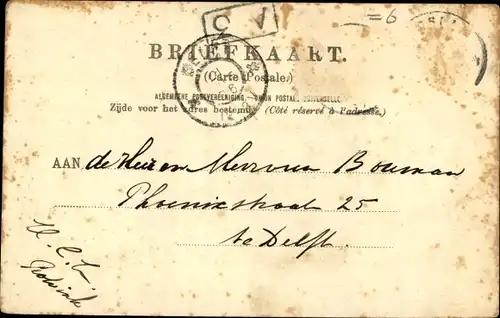 =6
BRIEFKAART.
(Carte Postale)
ALGEMEENE POSTVEREENIGING, UNION POSTALE UNIVERSELLE
Zijde voor het adres bestemd. (Côté réservé à l'adresse.)
AAN de Heer en Mevrouw Bouman
Phoenixstraat 25
te Delft.